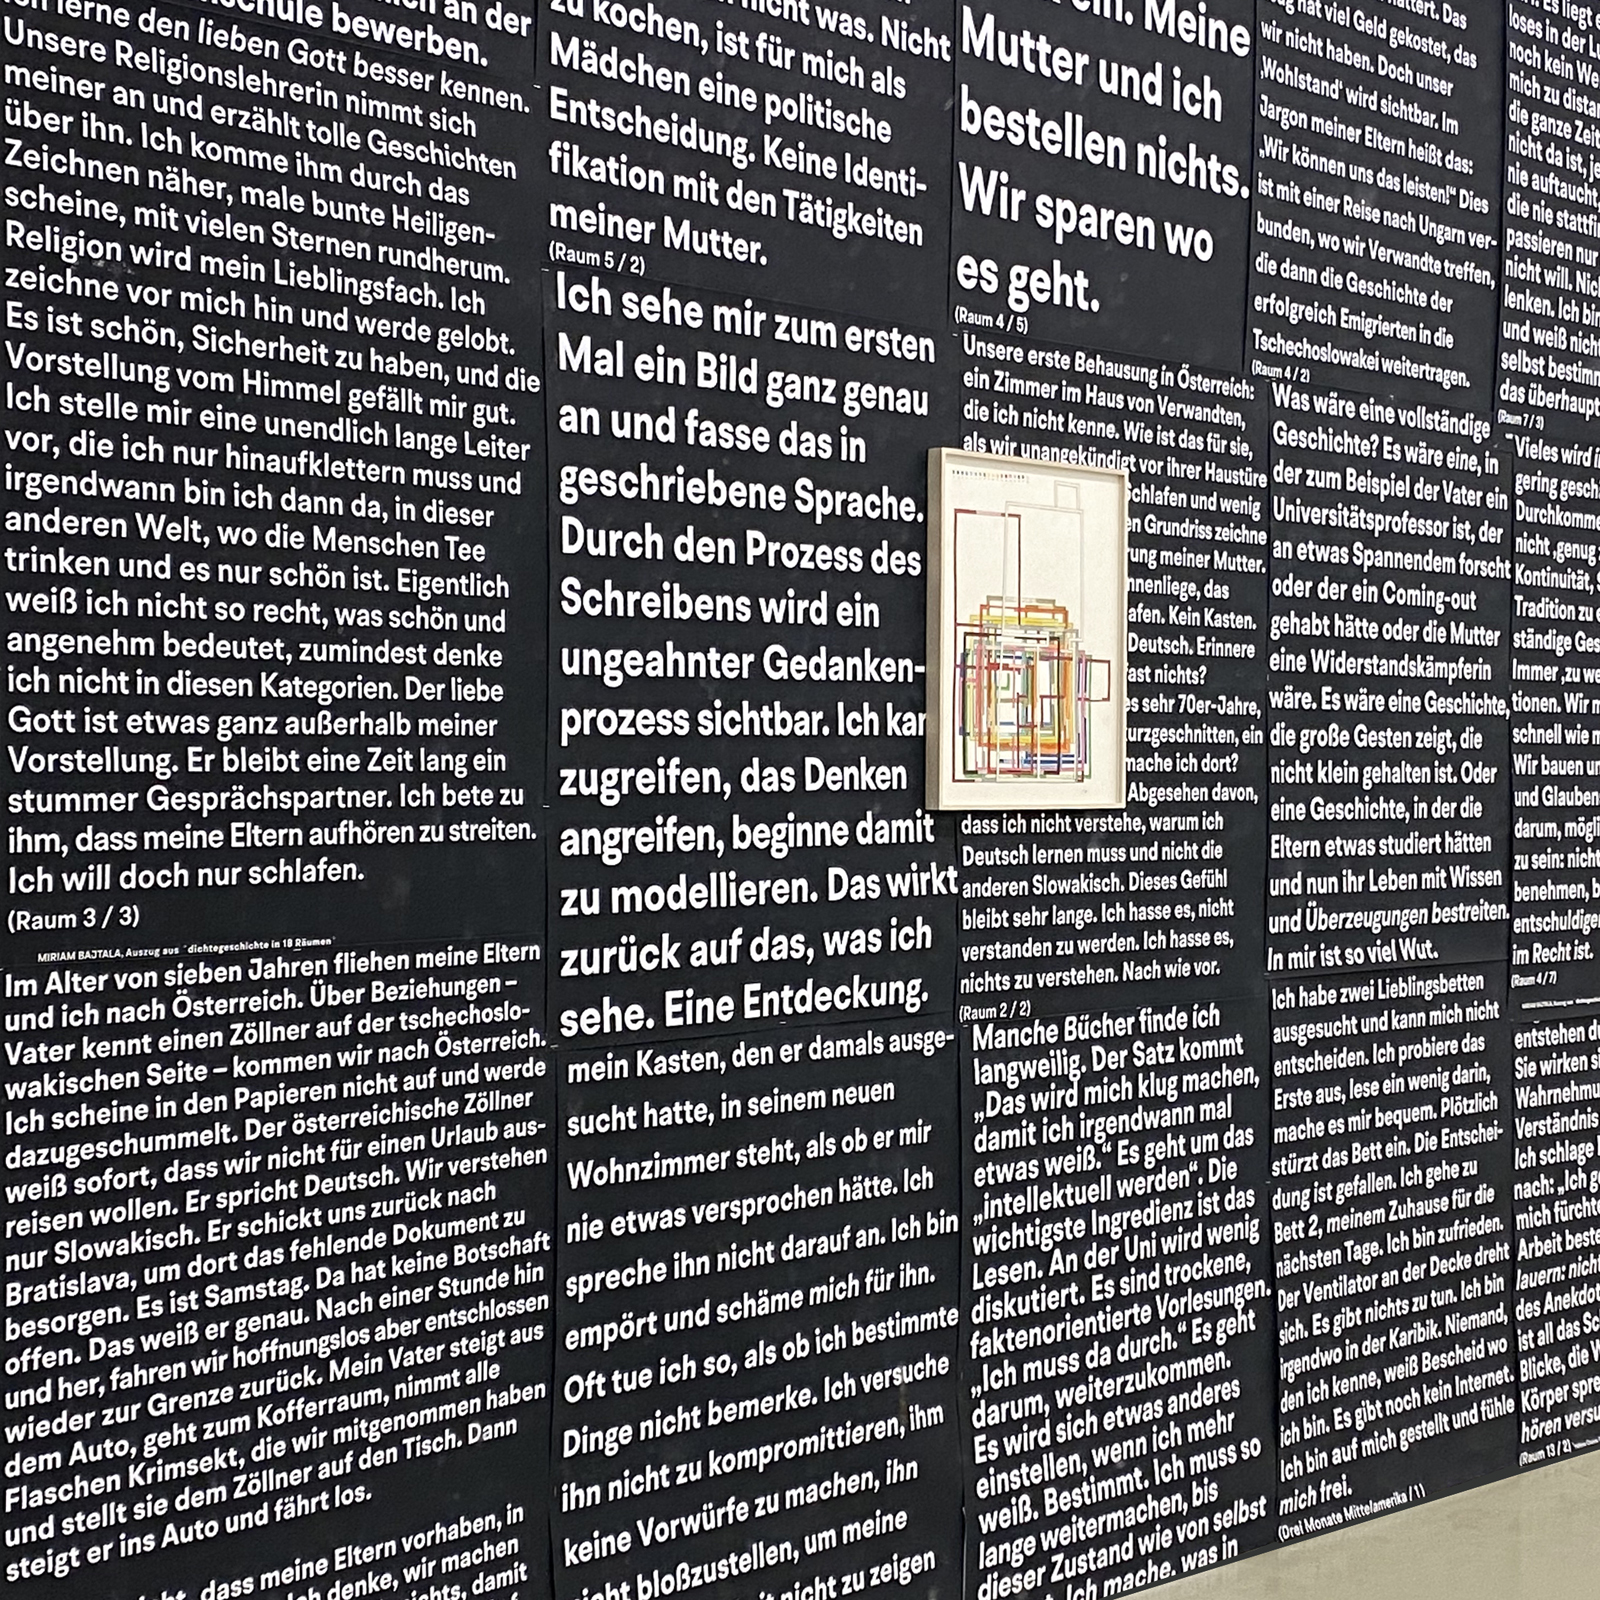 an der
bewerben.
lerne den lieben Gott besser kennen.
Unsere Religionslehrerin nimmt sich
meiner an und erzählt tolle Geschichten
über ihn. Ich komme ihm durch das
Zeichnen näher, male bunte Heiligen-
scheine, mit vielen Sternen rundherum.
Religion wird mein Lieblingsfach. Ich
zeichne vor mich hin und werde gelobt.
Es ist schön, Sicherheit zu haben, und die
Vorstellung vom Himmel gefällt mir gut.
Ich stelle mir eine unendlich lange Leiter
vor, die ich nur hinaufklettern muss und
irgendwann bin ich dann da, in dieser
anderen Welt, wo die Menschen Tee
trinken und es nur schön ist. Eigentlich
weiß ich nicht so recht, was schön und
angenehm bedeutet, zumindest denke
ich nicht in diesen Kategorien. Der liebe
Gott ist etwas ganz außerhalb meiner
Vorstellung. Er bleibt eine Zeit lang ein
stummer Gesprächspartner. Ich bete zu
ihm, dass meine Eltern aufhören zu streiten.
Ich will doch nur schlafen.
(Raum 3 / 3)
MIRIAM BAJTALA, Auszug aus "dichtegeschichte in 18 Räumen"
Im Alter von sieben Jahren fliehen meine Eltern
und ich nach Österreich. Über Beziehungen –
Vater kennt einen Zöllner auf der tschechoslo-
wakischen Seite – kommen wir nach Österreich.
Ich scheine in den Papieren nicht auf und werde
dazugeschummelt. Der österreichische Zöllner
weiß sofort, dass wir nicht für einen Urlaub aus-
reisen wollen. Er spricht Deutsch. Wir verstehen
nur Slowakisch. Er schickt uns zurück nach
Bratislava, um dort das fehlende Dokument zu
besorgen. Es ist Samstag. Da hat keine Botschaft
offen. Das weiß er genau. Nach einer Stunde hin
und her, fahren wir hoffnungslos aber entschlossen
wieder zur Grenze zurück. Mein Vater steigt aus
dem Auto, geht zum Kofferraum, nimmt alle
Flaschen Krimsekt, die wir mitgenommen haben
und stellt sie dem Zöllner auf den Tisch. Dann
steigt er ins Auto und fährt los.
dass meine Eltern vorhaben, in
denke, wir machen
damit
zu kochen, ist für mich als
nicht was. Nicht
Mädchen eine politische
Entscheidung. Keine Identi-
fikation mit den Tätigkeiten
meiner Mutter.
(Raum 5 / 2)
Ich sehe mir zum ersten
Mal ein Bild ganz genau
an und fasse das in
geschriebene Sprache.
Durch den Prozess des
Schreibens wird ein
ungeahnter Gedanken-
prozess sichtbar. Ich kan
zugreifen, das Denken
angreifen, beginne damit
zu modellieren. Das wirkt
zurück auf das, was ich
sehe. Eine Entdeckung.
mein Kasten, den er damals ausge-
sucht hatte, in seinem neuen
Wohnzimmer steht, als ob er mir
nie etwas versprochen hätte. Ich
spreche ihn nicht darauf an. Ich bin
empört und schäme mich für ihn.
Oft tue ich so, als ob ich bestimmte
Dinge nicht bemerke. Ich versuche
ihn nicht zu kompromittieren, ihm
keine Vorwürfe zu machen, ihn
nicht bloßzustellen, um meine
nicht zu zeigen
ein. Meine
Mutter und ich
bestellen nichts.
Wir sparen wo
es geht.
(Raum 4 / 5)
Unsere erste Behausung in Österreich:
ein Zimmer im Haus von Verwandten,
die ich nicht kenne. Wie ist das für sie,
als wir unangekündigt vor ihrer Haustüre
schlafen und wenig
en Grundriss zeichne
rung meiner Mutter.
nnenliege, das
afen. Kein Kasten.
Deutsch. Erinnere
ast nichts?
es sehr 70er-Jahre,
urzgeschnitten, ein
mache ich dort?
Abgesehen davon,
dass ich nicht verstehe, warum ich
Deutsch lernen muss und nicht die
anderen Slowakisch. Dieses Gefühl
bleibt sehr lange. Ich hasse es, nicht
verstanden zu werden. Ich hasse es,
nichts zu verstehen. Nach wie vor.
(Raum 2 / 2)
Manche Bücher finde ich
langweilig. Der Satz kommt
„Das wird mich klug machen,
damit ich irgendwann mal
etwas weiß.“ Es geht um das
„intellektuell werden“. Die
wichtigste Ingredienz ist das
Lesen. An der Uni wird wenig
diskutiert. Es sind trockene,
faktenorientierte Vorlesungen.
„Ich muss da durch.“ Es geht
darum, weiterzukommen.
Es wird sich etwas anderes
einstellen, wenn ich mehr
weiß. Bestimmt. Ich muss so
lange weitermachen, bis
dieser Zustand wie von selbst
Ich mache, was in
hat viel Geld gekostet, das
wir nicht haben. Doch unser
‚Wohlstand‘ wird sichtbar. Im
Jargon meiner Eltern heißt das:
„Wir können uns das leisten!“ Dies
ist mit einer Reise nach Ungarn ver-
bunden, wo wir Verwandte treffen,
die dann die Geschichte der
erfolgreich Emigrierten in die
Tschechoslowakei weitertragen.
(Raum 4 / 2)
Was wäre eine vollständige
Geschichte? Es wäre eine, in
der zum Beispiel der Vater ein
Universitätsprofessor ist, der
an etwas Spannendem forscht
oder der ein Coming-out
gehabt hätte oder die Mutter
eine Widerstandskämpferin
wäre. Es wäre eine Geschichte,
die große Gesten zeigt, die
nicht klein gehalten ist. Oder
eine Geschichte, in der die
Eltern etwas studiert hätten
und nun ihr Leben mit Wissen
und Überzeugungen bestreiten.
In mir ist so viel Wut.
Ich habe zwei Lieblingsbetten
ausgesucht und kann mich nicht
entscheiden. Ich probiere das
Erste aus, lese ein wenig darin,
mache es mir bequem. Plötzlich
stürzt das Bett ein. Die Entschei-
dung ist gefallen. Ich gehe zu
Bett 2, meinem Zuhause für die
nächsten Tage. Ich bin zufrieden.
Der Ventilator an der Decke dreht
sich. Es gibt nichts zu tun. Ich bin
irgendwo in der Karibik. Niemand,
den ich kenne, weiß Bescheid wo
ich bin. Es gibt noch kein Internet.
Ich bin auf mich gestellt und fühle
mich frei.
(Drei Monate Mittelamerika / 1)
Es liegt
loses in der Lu
noch kein We
mich zu distan
die ganze Zeit
nicht da ist, je
nie auftaucht,
die nie stattfi
passieren nur
nicht will. Nic
lenken. Ich bin
und weiß nich
selbst bestimm
das überhaupt
(Raum 7 / 3)
Vieles wird i
gering gesch
Durchkomme
nicht ‚genug
Kontinuität,
Tradition zu
ständige Ges
Immer ‚zu we
tionen. Wir m
schnell wie m
Wir bauen un
und Glauben
darum, mögli
zu sein: nicht
benehmen, b
entschuldige
im Recht ist.
(Raum 4 / 7)
entstehen du
Sie wirken si
Wahrnehmu
Verständnis
Ich schlage
nach: „Ich g
mich fürchte
Arbeit beste
lauern: nicht
des Anekdot
ist all das Sc
Blicke, die W
Körper spre
hören versu
(Raum 13 / 2)